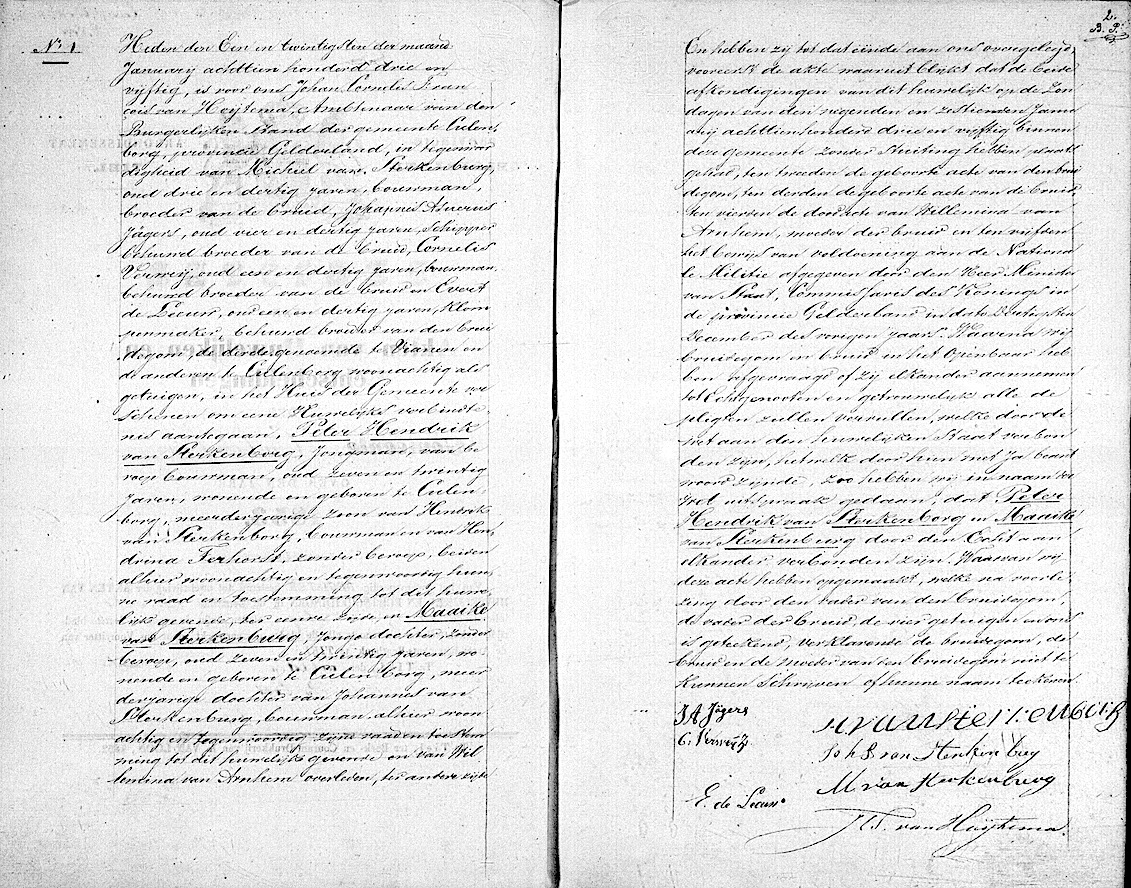 No 1.
Heden den Een en twintigsten der maand
January achttien honderd drie en
vijftig, is voor ons Johan Cornelis Fran
cois van Hoijtema, Ambtenaar van den
Burgerlijken Stand der gemeente Culen
borg, provincie Gelderland, in tegenwoor
digheid van Michiel van Sterkenburg,
oud drie en dertig jaren, bouwman,
broeder van de bruid, Johannis Asuerus
Jägers, oud vier en dertig jaren, Schipper
behuwd broeder van de bruid, Cornelis
Verweij, oud een en dertig jaren, bouwman
behuwd broeder van de bruid en Evert
de Leeuw, oud een en dertig jaren, klom
penmaker, behuwd broeder van den brui
degom, de derdegenoemde te Vianen en
de anderen te Culenborg woonachtig als
getuigen, in het Huis der Gemeente ver
schenen om eene Huwelijks verbindte
nis aantegaan, Peter Hendrik
van Sterkenburg, Jongman, van be
roep bouwman, oud zeven en twintig
Jaren, wonende en geboren te Culen
borg, meerderjarige zoon van Hendrik
van Sterkenburg, bouwman en van Hen
drina Terhorst, zonder beroep, beiden
alhier woonachtig en tegenwoordig hun
ne raad en toestemming tot dit huwe
lijk gevende, ter eenre zijde, en Maaike
van Sterkenburg, Jonge dochter, zonder
beroep, oud zeven en twintig jaren, wo
nende en geboren te Culenborg, meer
derjarige dochter van Johannes van
Sterkenburg, bouwman, alhier woon
achtig en tegenwoordig zijne raad en toestem
ming tot dit huwelijk gevende en van Wil
lemina van Arnhem overleden, ter andere zijde
2.
B. P.
En hebben zij tot dat einde aan ons overgelegd,
vooreerst de akte waaruit blijkt dat de beide
afkondigingen van dit huwelijk op de Zon
dagen van den negenden en zestienden Janu
arij achttienhonderd drie en vijftig binnen
deze gemeente zonder Stuiting hebben plaats
gehad, ten tweeden de geboorte acte van den brui
degom, ten derden de geboorte acte van de bruid,
ten vierden de doodacte van Willemina van
Arnhem, moeder der bruid en ten vijfden
het bewijs van voldoening aan de Nationa
le Militie afgegeven door den Heer Minister
van Staat, Commissaris des Konings in
de provincie Gelderland in dato dertigsten
December des vorigen jaars. Waarna wij
bruidegom en bruid in het openbaar heb
ben afgevraagd of zij elkander aannemen
tot Echtgenooten en getrouwelijk alle de
pligten zullen vervullen, welke door de
wet aan den huwelijken Staat verbon
den zijn, hetwelk door hen met Ja beant
woord zijnde, zoo hebben wij in naam der
Wet uitspraak gedaan, dat Peter
Hendrik van Sterkenburg en Maaike
van Sterkenburg door den Echt aan
elkander verbonden zijn. Waarvan wij
deze acte hebben opgemaakt, welke na voorle
zing door den vader van den bruidegom,
de vader der bruid, de vier getuigen en ons
is geteekend, verklarende de bruidegom, de
bruid en de moeder van den bruidegom niet te
kunnen Schrijven of hunne naam teekenen
J A Jägers
C. Verweij
H van Sterkenburg
Joh S van Sterkenburg
M van Sterkenburg
E. de Leeuw
J C F. van Hoijtema.